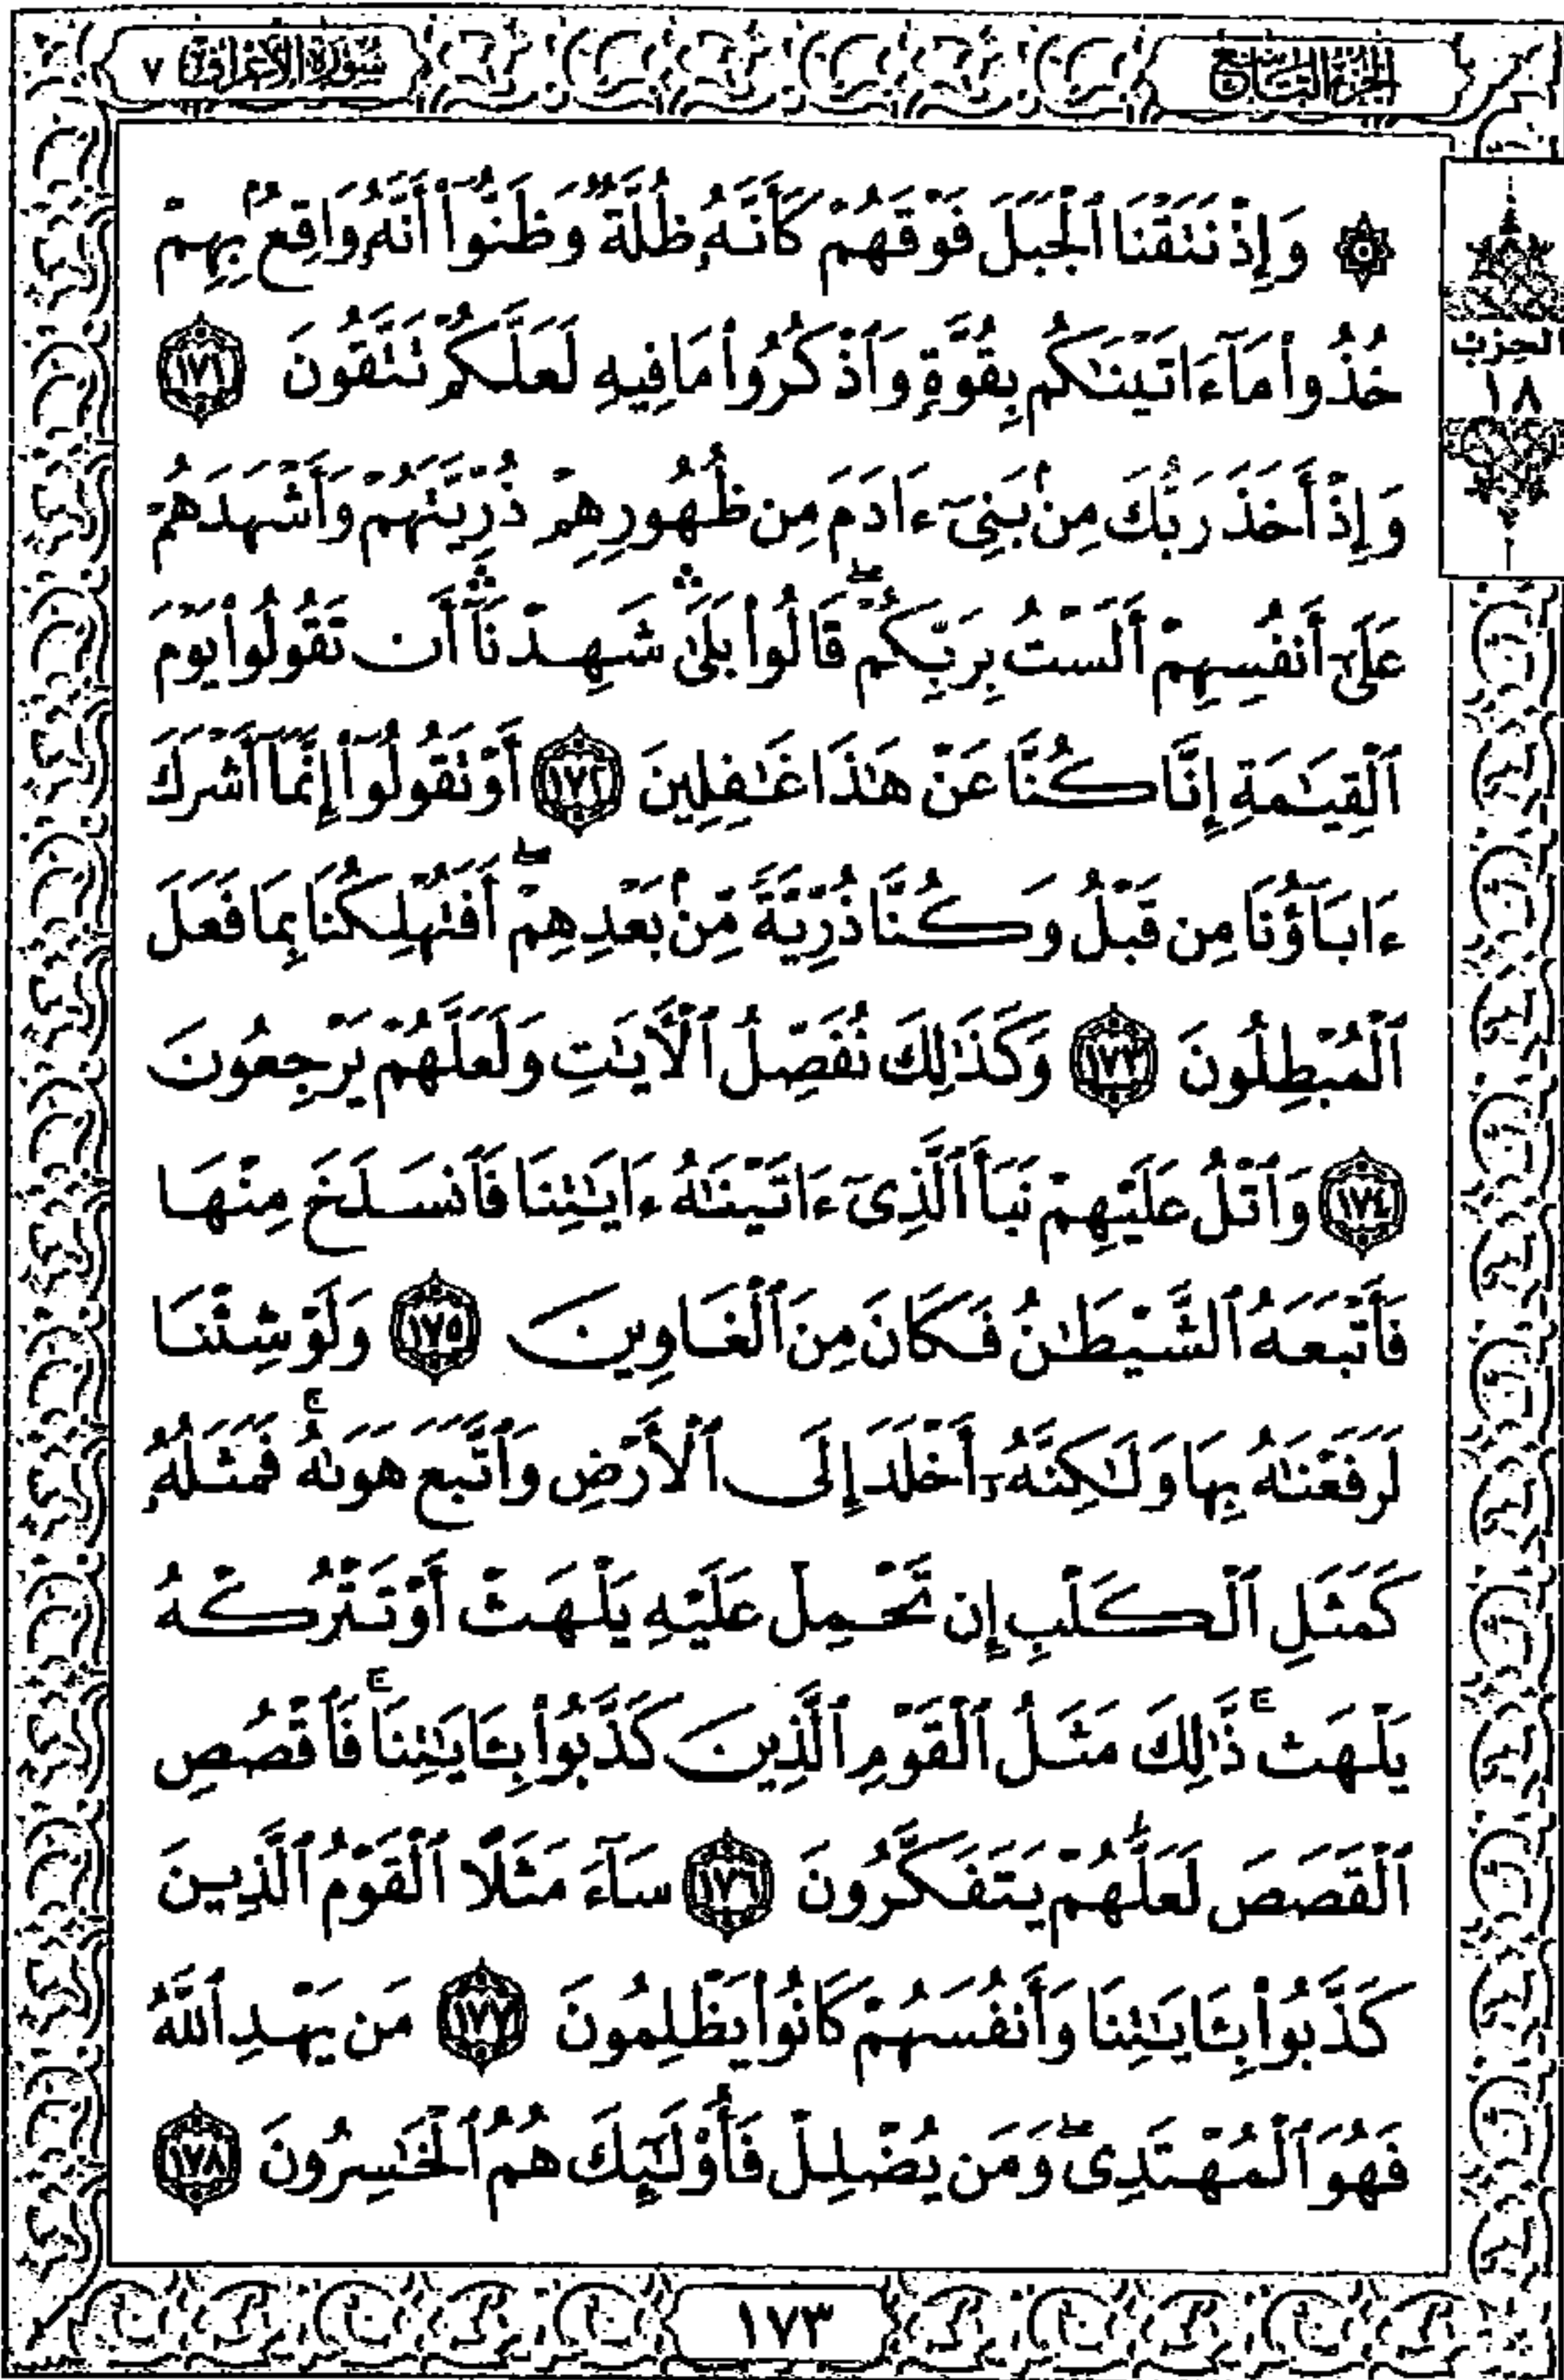 الجزء التاسع
سورة الأعراف ٧
۞ وَإِذْ نَتَقْنَا ٱلْجَبَلَ فَوْقَهُمْ كَأَنَّهُۥ ظُلَّةٌ وَظَنُّوٓا۟ أَنَّهُۥ وَاقِعٌۢ بِهِمْ
خُذُوا۟ مَآ ءَاتَيْنَـٰكُم بِقُوَّةٍ وَٱذْكُرُوا۟ مَا فِيهِ لَعَلَّكُمْ تَتَّقُونَ ١٧١
وَإِذْ أَخَذَ رَبُّكَ مِنۢ بَنِىٓ ءَادَمَ مِن ظُهُورِهِمْ ذُرِّيَّتَهُمْ وَأَشْهَدَهُمْ
عَلَىٰٓ أَنفُسِهِمْ أَلَسْتُ بِرَبِّكُمْ ۖ قَالُوا۟ بَلَىٰ ۛ شَهِدْنَآ ۛ أَن تَقُولُوا۟ يَوْمَ
ٱلْقِيَـٰمَةِ إِنَّا كُنَّا عَنْ هَـٰذَا غَـٰفِلِينَ ١٧٢ أَوْ تَقُولُوٓا۟ إِنَّمَآ أَشْرَكَ
ءَابَآؤُنَا مِن قَبْلُ وَكُنَّا ذُرِّيَّةً مِّنۢ بَعْدِهِمْ ۖ أَفَتُهْلِكُنَا بِمَا فَعَلَ
ٱلْمُبْطِلُونَ ١٧٣ وَكَذَٰلِكَ نُفَصِّلُ ٱلْـَٔايَـٰتِ وَلَعَلَّهُمْ يَرْجِعُونَ
١٧٤ وَٱتْلُ عَلَيْهِمْ نَبَأَ ٱلَّذِىٓ ءَاتَيْنَـٰهُ ءَايَـٰتِنَا فَٱنسَلَخَ مِنْهَا
فَأَتْبَعَهُ ٱلشَّيْطَـٰنُ فَكَانَ مِنَ ٱلْغَاوِينَ ١٧٥ وَلَوْ شِئْنَا
لَرَفَعْنَـٰهُ بِهَا وَلَـٰكِنَّهُۥٓ أَخْلَدَ إِلَى ٱلْأَرْضِ وَٱتَّبَعَ هَوَىٰهُ ۚ فَمَثَلُهُۥ
كَمَثَلِ ٱلْكَلْبِ إِن تَحْمِلْ عَلَيْهِ يَلْهَثْ أَوْ تَتْرُكْهُ
يَلْهَث ۚ ذَّٰلِكَ مَثَلُ ٱلْقَوْمِ ٱلَّذِينَ كَذَّبُوا۟ بِـَٔايَـٰتِنَا ۚ فَٱقْصُصِ
ٱلْقَصَصَ لَعَلَّهُمْ يَتَفَكَّرُونَ ١٧٦ سَآءَ مَثَلًا ٱلْقَوْمُ ٱلَّذِينَ
كَذَّبُوا۟ بِـَٔايَـٰتِنَا وَأَنفُسَهُمْ كَانُوا۟ يَظْلِمُونَ ١٧٧ مَن يَهْدِ ٱللَّهُ
فَهُوَ ٱلْمُهْتَدِى ۖ وَمَن يُضْلِلْ فَأُو۟لَـٰٓئِكَ هُمُ ٱلْخَـٰسِرُونَ ١٧٨
الحزب
١٨
١٧٣